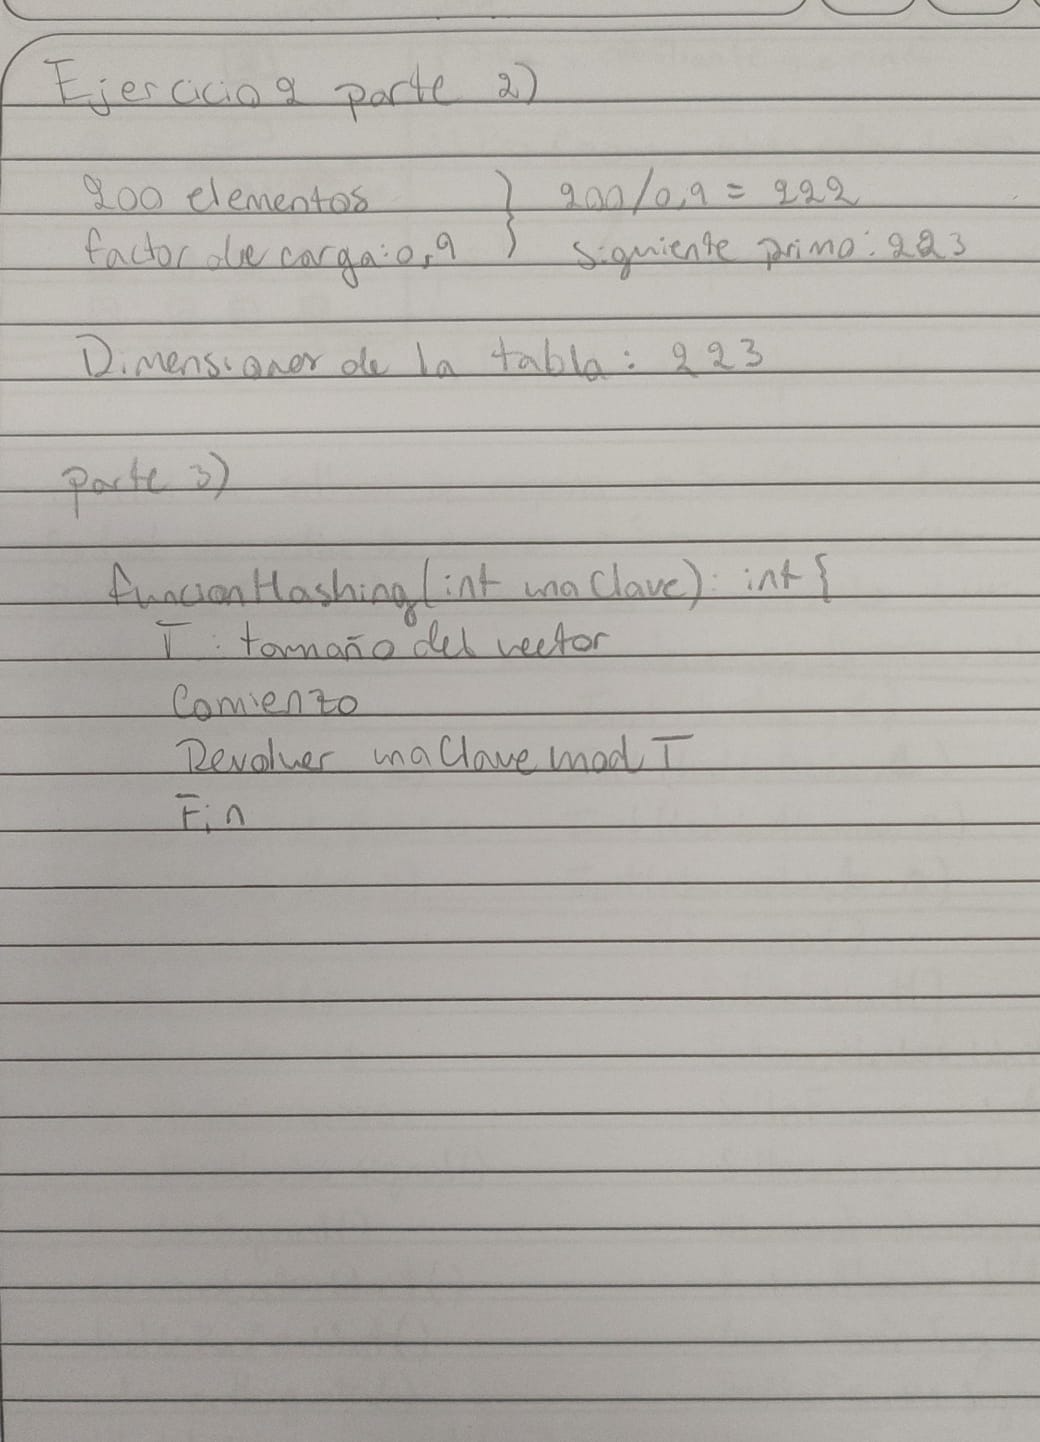 Ejercicio 2 parte 2)
200 elementos } 200/0,9 = 222
factor de carga: 0,9 siguiente primo: 223
Dimensiones de la tabla: 223
parte 3)
funcionHashing(int unaClave): int {
T: tamaño del vector
Comienzo
Devolver unaClave mod T
Fin